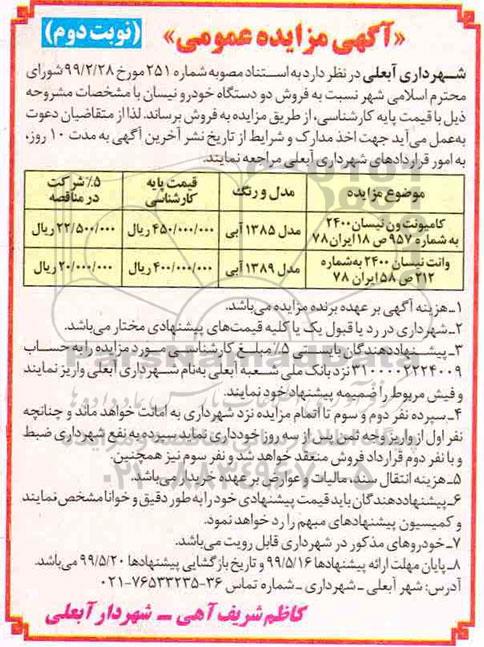 «آگهی مزایده عمومی»
(نوبت دوم)
شهرداری آبعلی در نظر دارد به استناد مصوبه شماره ۲۵۱ مورخ ۹۹/۲/۲۸ شورای
محترم اسلامی شهر نسبت به فروش دو دستگاه خودرو نیسان با مشخصات مشروحه
ذیل با قیمت پایه کارشناسی، از طریق مزایده به فروش برساند. لذا از متقاضیان دعوت
به‌عمل می‌آید جهت اخذ مدارک و شرایط از تاریخ نشر آخرین آگهی به مدت ۱۰ روز،
به امور قراردادهای شهرداری آبعلی مراجعه نمایند.
موضوع مزایده | مدل و رنگ | قیمت پایه کارشناسی | ۵٪ شرکت در مناقصه
کامیونت ون نیسان ۲۴۰۰ به شماره ۹۵۷ ص ۱۸ ایران ۷۸ | مدل ۱۳۸۵ آبی | ۴۵۰/۰۰۰/۰۰۰ ریال | ۲۲/۵۰۰/۰۰۰ ریال
وانت نیسان ۲۴۰۰ به‌شماره ۲۱۲ ص ۵۸ ایران ۷۸ | مدل ۱۳۸۹ آبی | ۴۰۰/۰۰۰/۰۰۰ ریال | ۲۰/۰۰۰/۰۰۰ ریال
۱ـ هزینه آگهی بر عهده برنده مزایده می‌باشد.
۲ـ شهرداری در رد یا قبول یک یا کلیه قیمت‌های پیشنهادی مختار می‌باشد.
۳ـ پیشنهاددهندگان بایستی ۵٪ مبلغ کارشناسی مورد مزایده را به حساب
۳۱۰۰۰۰۲۲۲۴۰۰۹ نزد بانک ملی شعبه آبعلی به‌نام شهرداری آبعلی واریز نمایند
و فیش مربوط را ضمیمه پیشنهاد خود نمایند.
۴ـ سپرده نفر دوم و سوم تا اتمام مزایده نزد شهرداری به امانت خواهد ماند و چنانچه
نفر اول از واریز وجه ثمن پس از سه روز خودداری نماید سپرده به نفع شهرداری ضبط
و با نفر دوم قرارداد فروش منعقد خواهد شد و نفر سوم نیز همچنین.
۵ـ هزینه انتقال سند، مالیات و عوارض بر عهده خریدار می‌باشد.
۶ـ پیشنهاددهندگان باید قیمت پیشنهادی خود را به طور دقیق و خوانا مشخص نمایند
و کمیسیون پیشنهادهای مبهم را رد خواهد نمود.
۷ـ خودروهای مذکور در شهرداری قابل رویت می‌باشد.
۸ـ پایان مهلت ارائه پیشنهادها ۹۹/۵/۱۶ و تاریخ بازگشایی پیشنهادها ۹۹/۵/۲۰ می‌باشد.
آدرس: شهر آبعلی ـ شهرداری ـ شماره تماس ۳۶-۷۶۵۳۳۲۳۵-۰۲۱
کاظم شریف آهی ـ شهردار آبعلی